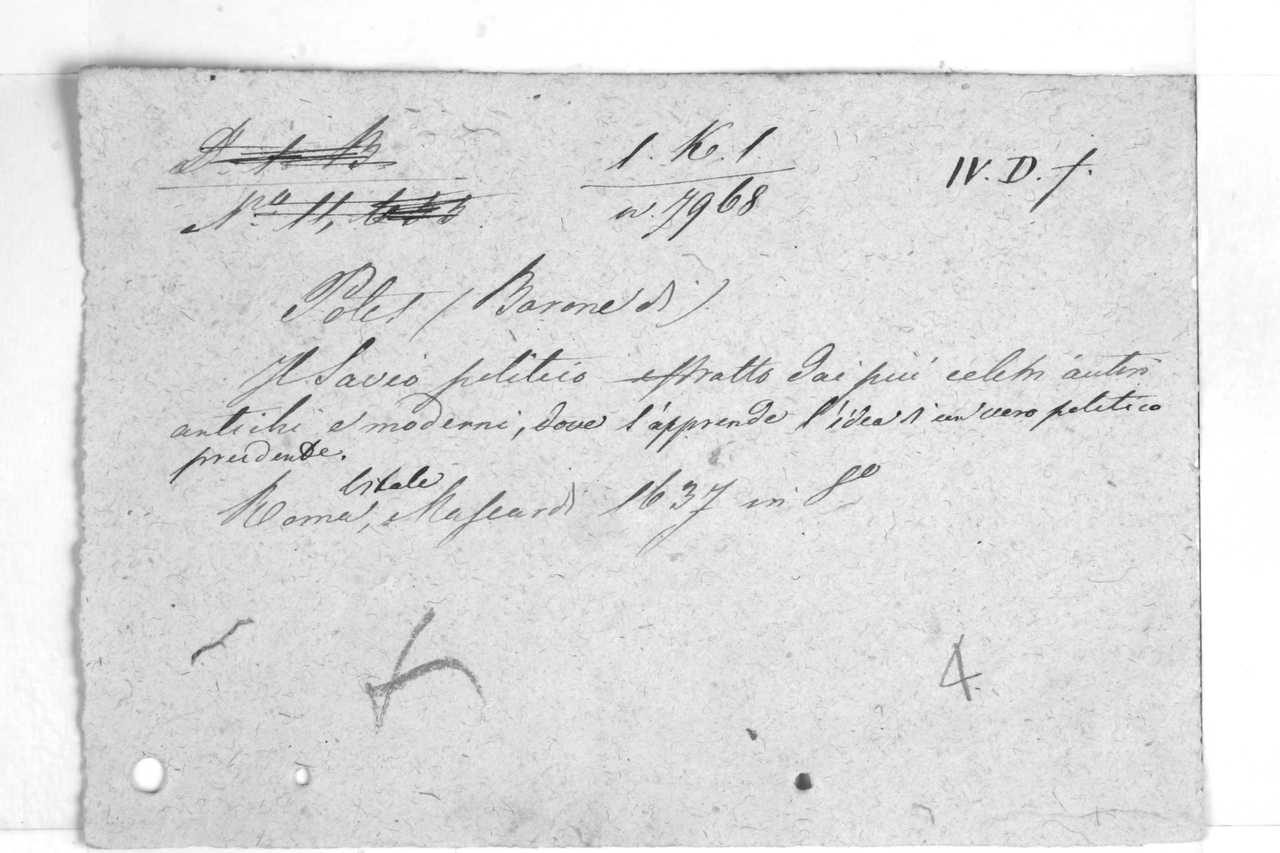 D. 1. B   1. K. 1   IV. D. f.
N.ro 11,   n. 7968
Polet (Barone di)
Il Savio politico estratto dai piú celebri autori
antichi e moderni, dove s'apprende l'idea di un vero politico
prudente.
Vitale
Roma, Mascardi 1637 in 8o
4.